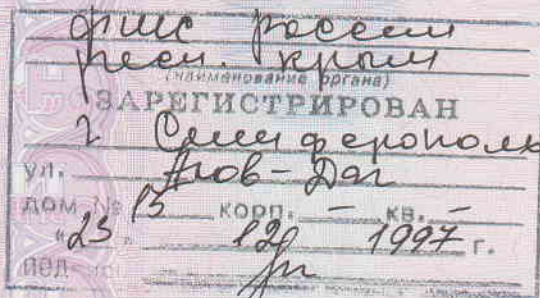 фмс россии
респ. крым
(наименование органа)
ЗАРЕГИСТРИРОВАН
г Симферополь
ул. Аюв-Даг
дом № 15 корп. - кв. -
"23" 12 1997 г.